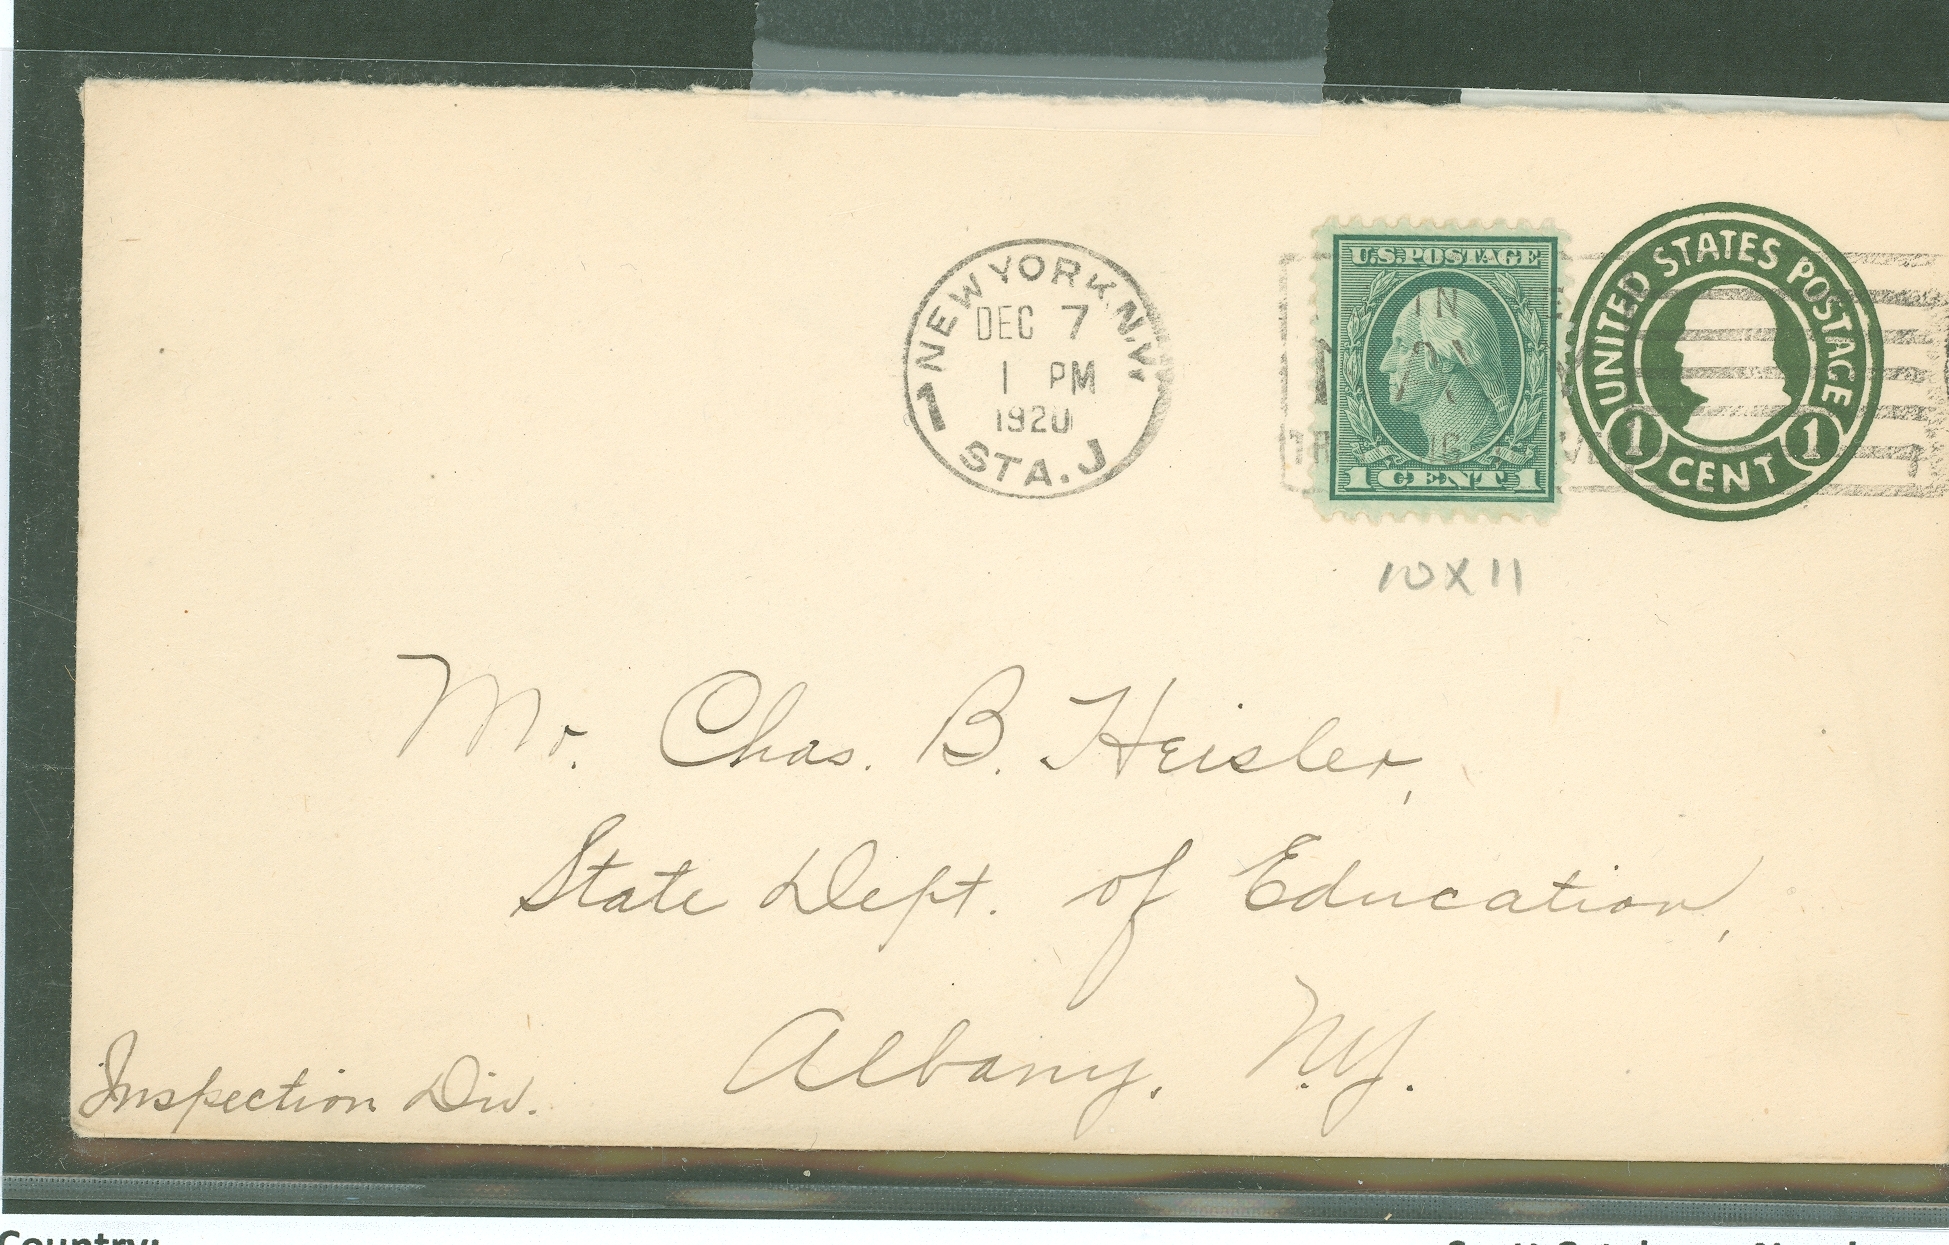 NEW YORK, N.Y.
DEC 7
1 PM
1920
7
STA. J
U.S. POSTAGE
1 CENT 1
UNITED STATES POSTAGE
1 CENT 1
IN
10 X 11
Mr. Chas. B. Heisler,
State Dept. of Education,
Albany, N.Y.
Inspection Div.
Country: